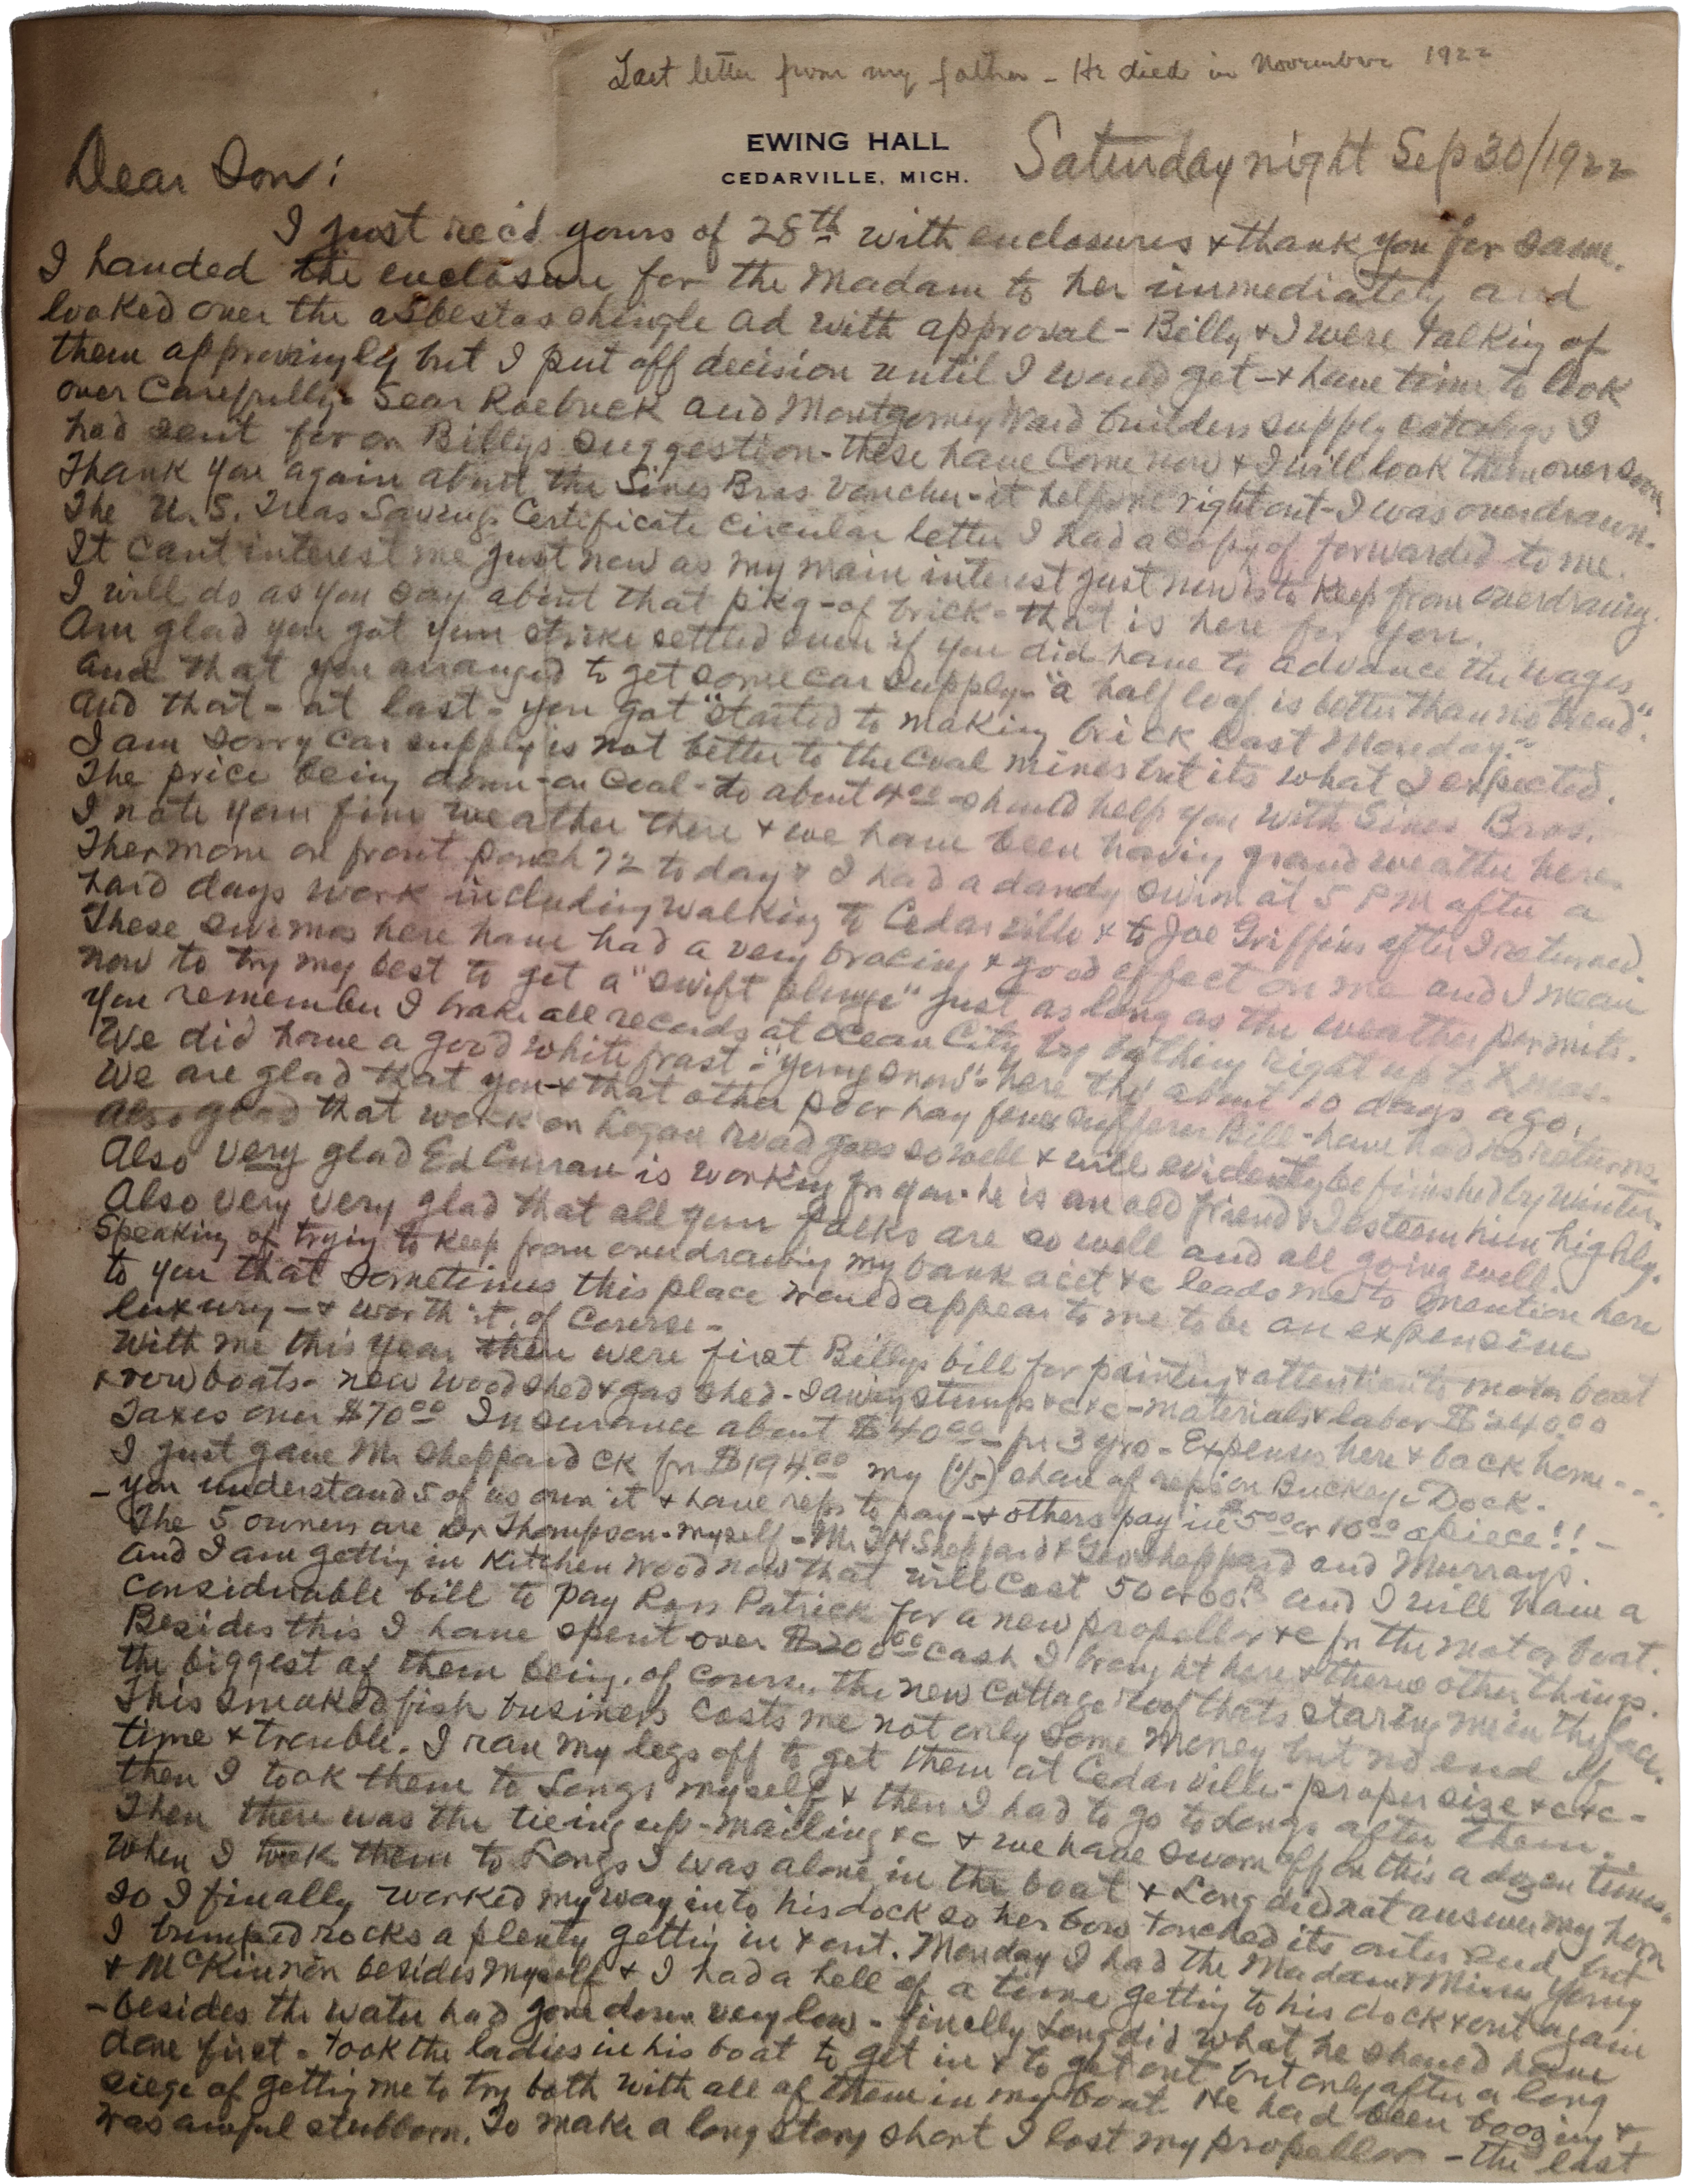 Last letter from my father - He died in November 1922
EWING HALL
CEDARVILLE, MICH.
Saturday night Sep 30/1922
Dear Son:
I just rec'd yours of 28th with enclosures & thank you for same.
I handed the enclosure for the Madam to her immediately and
looked over the asbestos shingle ad with approval - Billy & I were talking of
them approvingly but I put off decision until I would get - & have time to look
over carefully - Sear Roebuck and Montgomery Ward builders supply catalogs I
had sent for on Billys suggestion - these have come now & I will look them over soon
Thank you again about the Sines Bros voucher - it helps me right out - I was overdrawn.
The U.S. Treas Savings Certificate circular letter I had a copy of forwarded to me.
It cant interest me just now as my main interest just now is to keep from overdrawing.
I will do as you say about that pkg - of brick - that is here for you.
Am glad you got your strike settled even if you did have to advance the wages
and that you arranged to get some car supply - "a half loaf is better than no bread".
And that - at last - you got "started to making brick last Monday."
I am sorry car supply is not better to the coal mines but its what I expected.
The price being down - on coal - to about 4.00 - should help you with Sines Bros.
I note your fine weather there & we have been having grand weather here.
Thermom on front porch 72 today & I had a dandy swim at 5 PM after a
hard days work including walking to Cedarville & to Joe Griffins after I returned.
These swims here have had a very bracing & good effect on me and I mean
now to try my best to get a "swift plunge" just as long as the weather permits.
You remember I brake all records at Ocean City by bathing right up to Xmas.
We did have a good white frast - "yerry snow" - here tho' about 10 days ago.
We are glad that you & that other poor hay fever sufferer Bill - have had no returns.
Also glad that work on Logan road goes so well & will evidently be finished by winter.
Also very glad Ed Curran is working for you - he is an old friend & I esteem him highly.
Also very very glad that all your folks are so well and all going well.
Speaking of trying to keep from overdrawing my bank acct &c leads me to mention here
to you that sometimes this place would appear to me to be an expensive
luxury - & worth it, of course -
With me this year there were first Billys bill for painting & attention to motor boat
& row boats - new wood shed & gas shed - sawing stumps &c &c - materials & labor $240.00
Taxes over $70.00 Insurance about $40.00 - for 3 yrs - Expenses here & back home - - - -
I just gave Mr Sheppard ck for $194.00 my (1/5) share of reps on Buckeye Dock.
- you understand 5 of us own it & have reps to pay - & others pay in $5.00 or 10.00 apiece!! -
The 5 owners are Dr Thompson - myself - Mr T H Sheppard & Geo Sheppard and Murrays.
And I am getting in kitchen wood now that will cost 50 or 60.$ and I will have a
considerable bill to pay Ross Patrick for a new propellor &c for the motor boat.
Besides this I have spent over $200.00 cash I brought here & theres other things
the biggest of them being, of course, the new cottage roof thats staring me in the face.
This smoked fish business costs me not only some money but no end of
time & trouble. I ran my legs off to get them at Cedarville - proper size &c &c -
then I took them to Longs myself & then I had to go to Longs after them.
Then there was the tieing up - mailing &c & we have sworn off on this a dozen times.
When I took them to Longs I was alone in the boat & Long did not answer my horn
so I finally worked my way into his dock so her bow touched its outer end, but
I bumped rocks a plenty getting in & out. Monday I had the Madam & Misses Yerry
& McKinnon besides myself & I had a hell of a time getting to his dock & out again
- besides the water had gone down very low - finally Long did what he should have
done first - took the ladies in his boat to get in & to get out but only after a long
siege of getting me to try both with all of them in my boat. He had been boozing &
was awful stubborn. To make a long story short I lost my propellor - the last